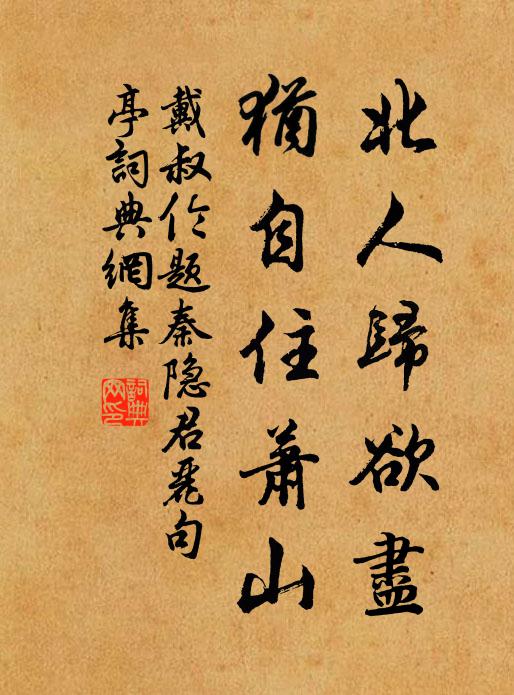 北人歸欲盡
猶自住蕭山
戴叔伦题秦隐君麗句
亭詞典網集
詞典网印